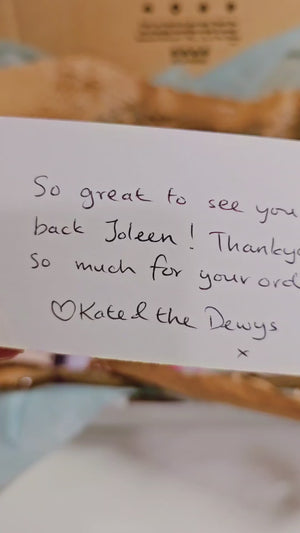 So great to see you
back Joleen! Thankyo
So much for your ord
♡Kate & the Dewys
x